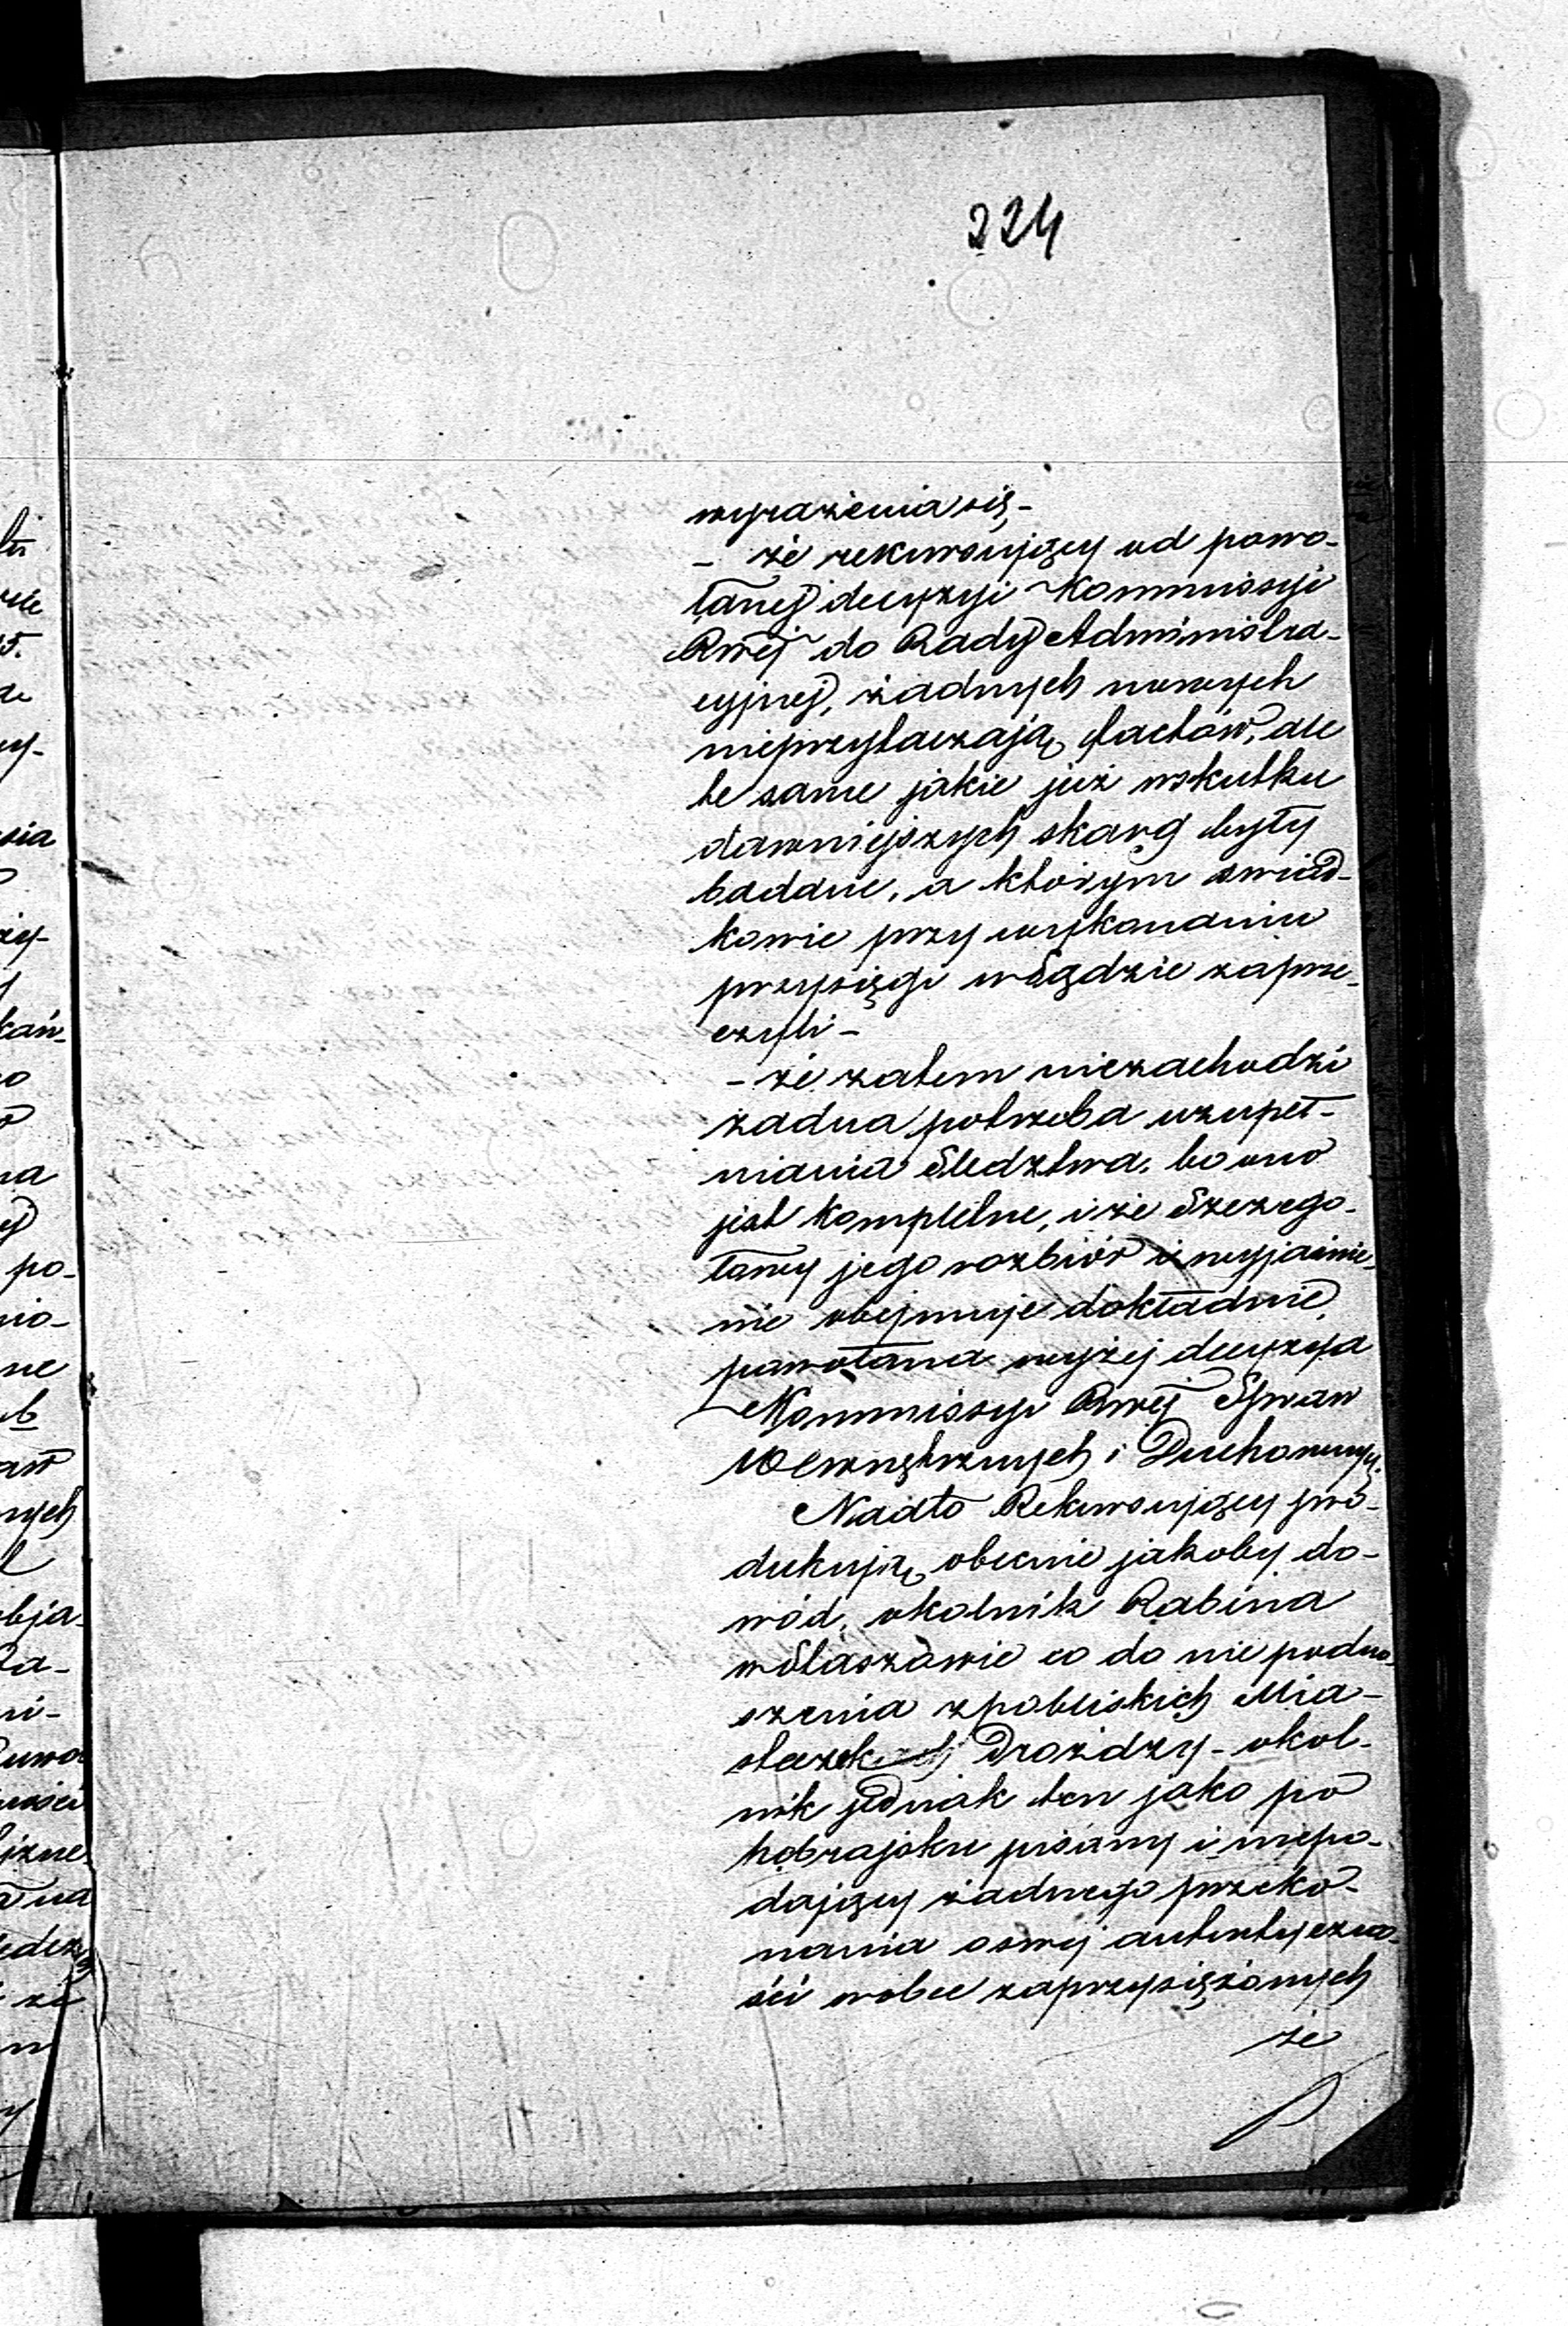 224
wyrażenia się,-
- że rekursujący od powo-
łanej decyzyi Kommissyi
Rwéj do Rady Administra-
cyjnej, żadnych nowych
nieprzytaczają factów, ale
te same jakie już wskutku
dawniejszych skarg były
badane, a którym świad-
kowie przy wykonaniu
przysięgi w Sądzie zaprze-
czyli -
- że zatem niezachodzi
żadna potrzeba uzupeł-
niania Śledztwa, bo ono
jest kompletne, i że Szczegó-
łowy jego rozbiór i wyjaśnie-
nie obejmuje dokładnie
powołana wyżej decyzya
Kommissyi Rwéj Spraw
Wewnętrznych i Duchownych.
Nadto Rekursujący pro-
dukują obecnie jakoby do-
wód, okolnik Rabina
w Staszowie co do nie podno-
szenia z pobliskich Mia-
steczek Drożdzy - okol-
nik jednak ten jako po
hebrajsku pisany i niepo-
dający żadnego przeko-
nania o swej autentyczno-
ści wobec zaprzysiężonych
że